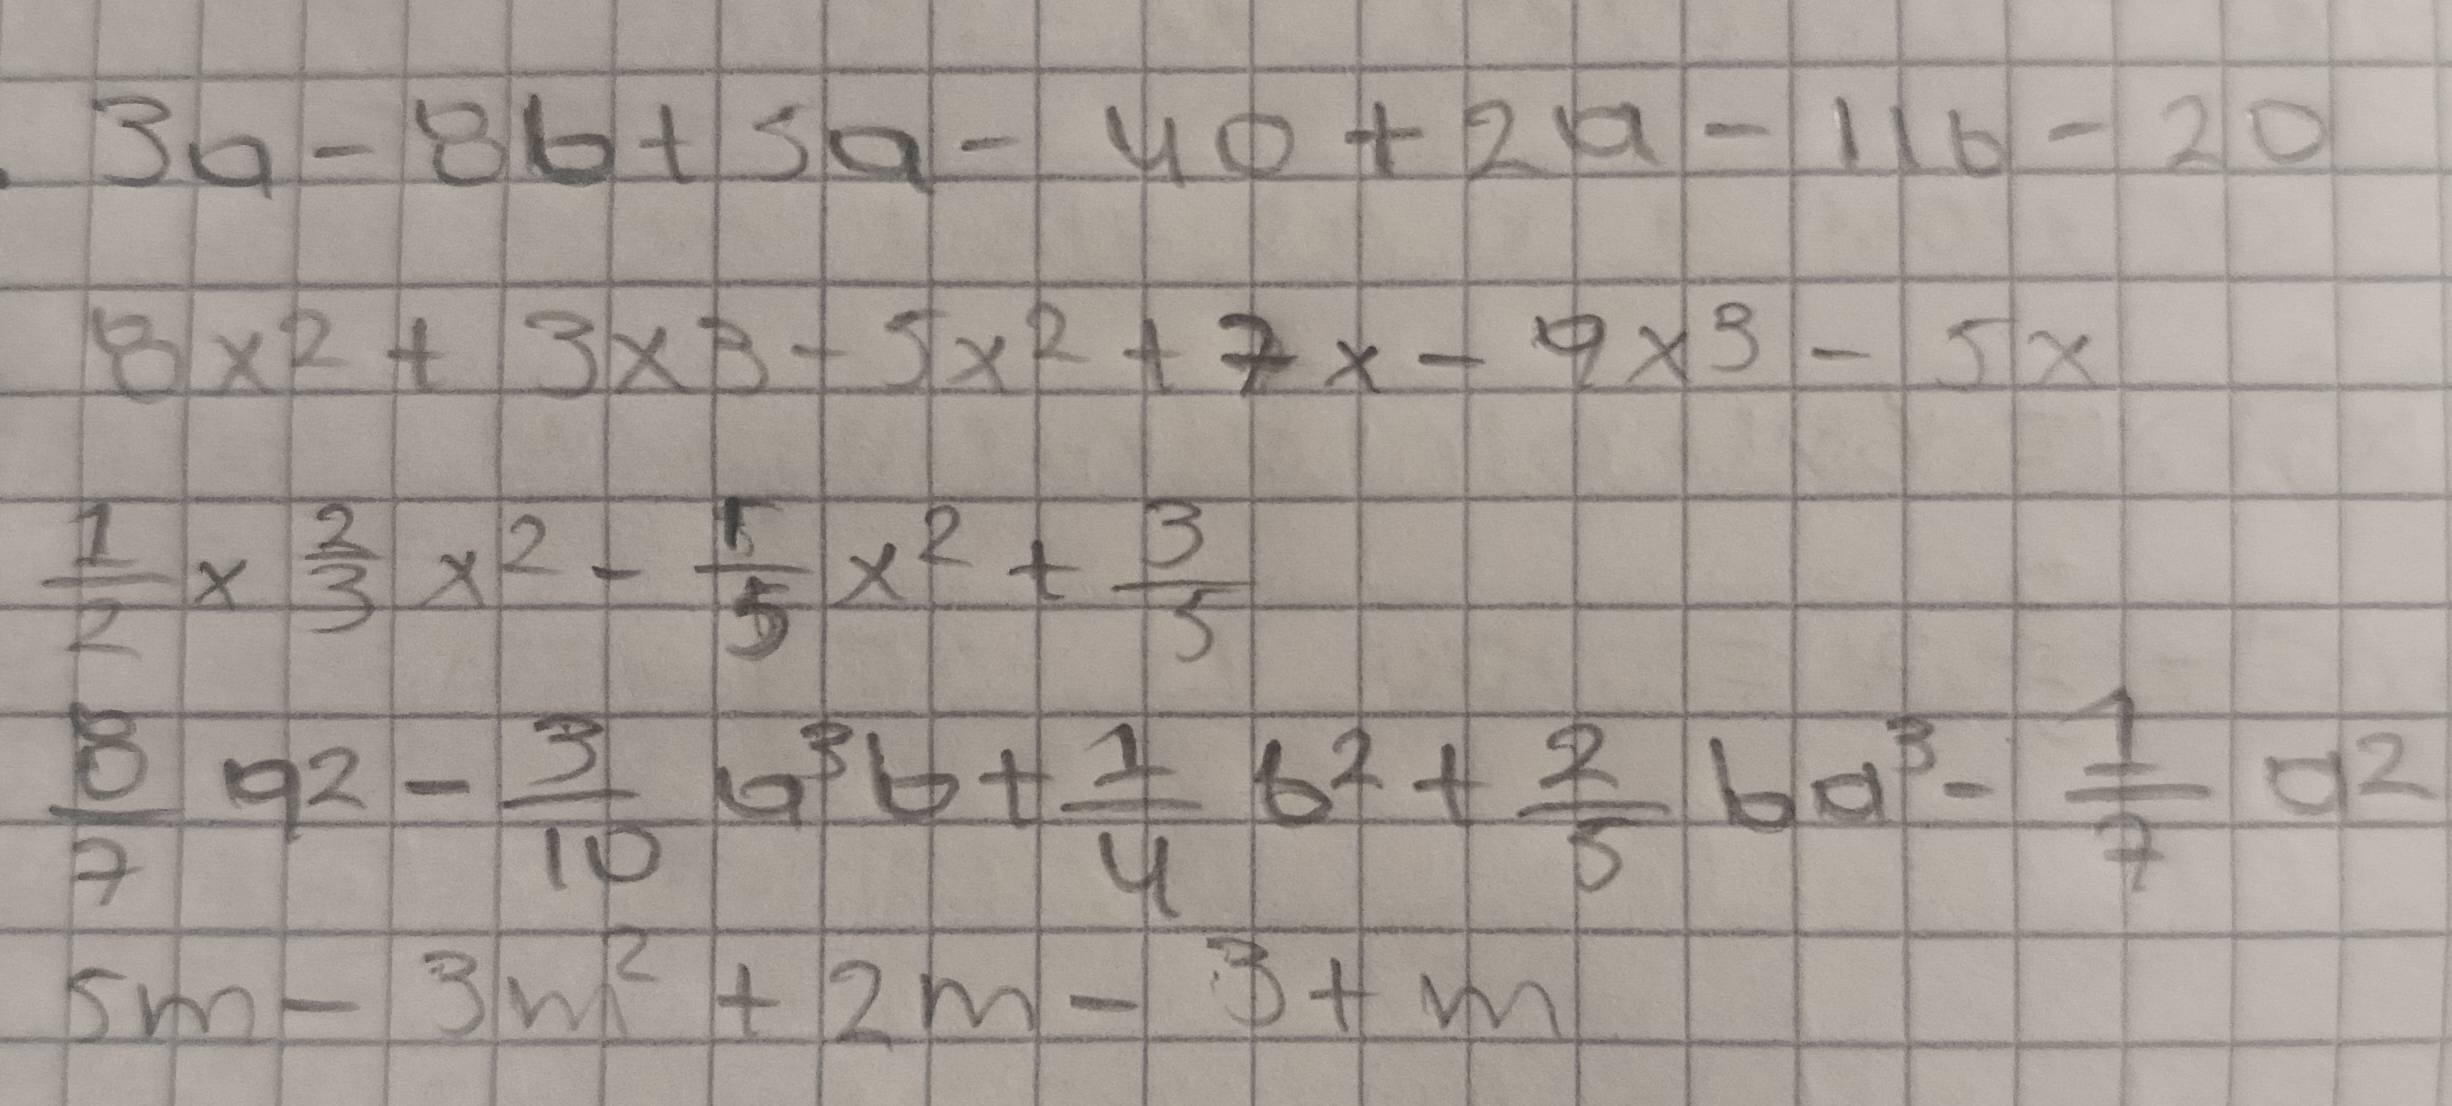 3a - 8b + 5a - 40 + 2a - 11b - 20
8x² + 3x3 - 5x² + 7x - 9x³ - 5x
1/2 x 2/3 x² - 1/5 x² + 3/5
8/7 a² - 3/10 a³b + 1/4 b² + 2/5 ba³ - 1/7 a²
5m - 3m² + 2m - 3 + m